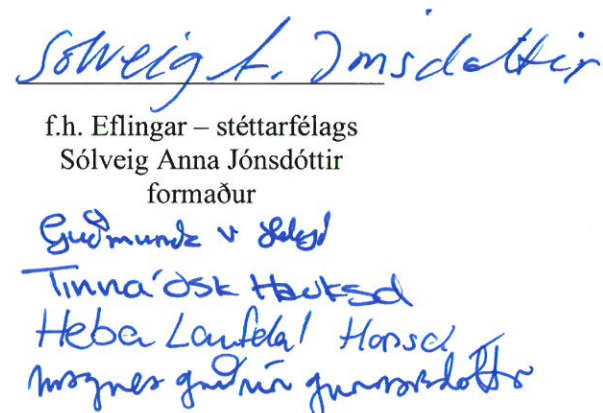 Sólveig A. Jónsdóttir
f.h. Eflingar – stéttarfélags
Sólveig Anna Jónsdóttir
formaður
Guðmunda V
Tinna Ósk Hauksd
Heba Laufdal Hansd
Guðrún